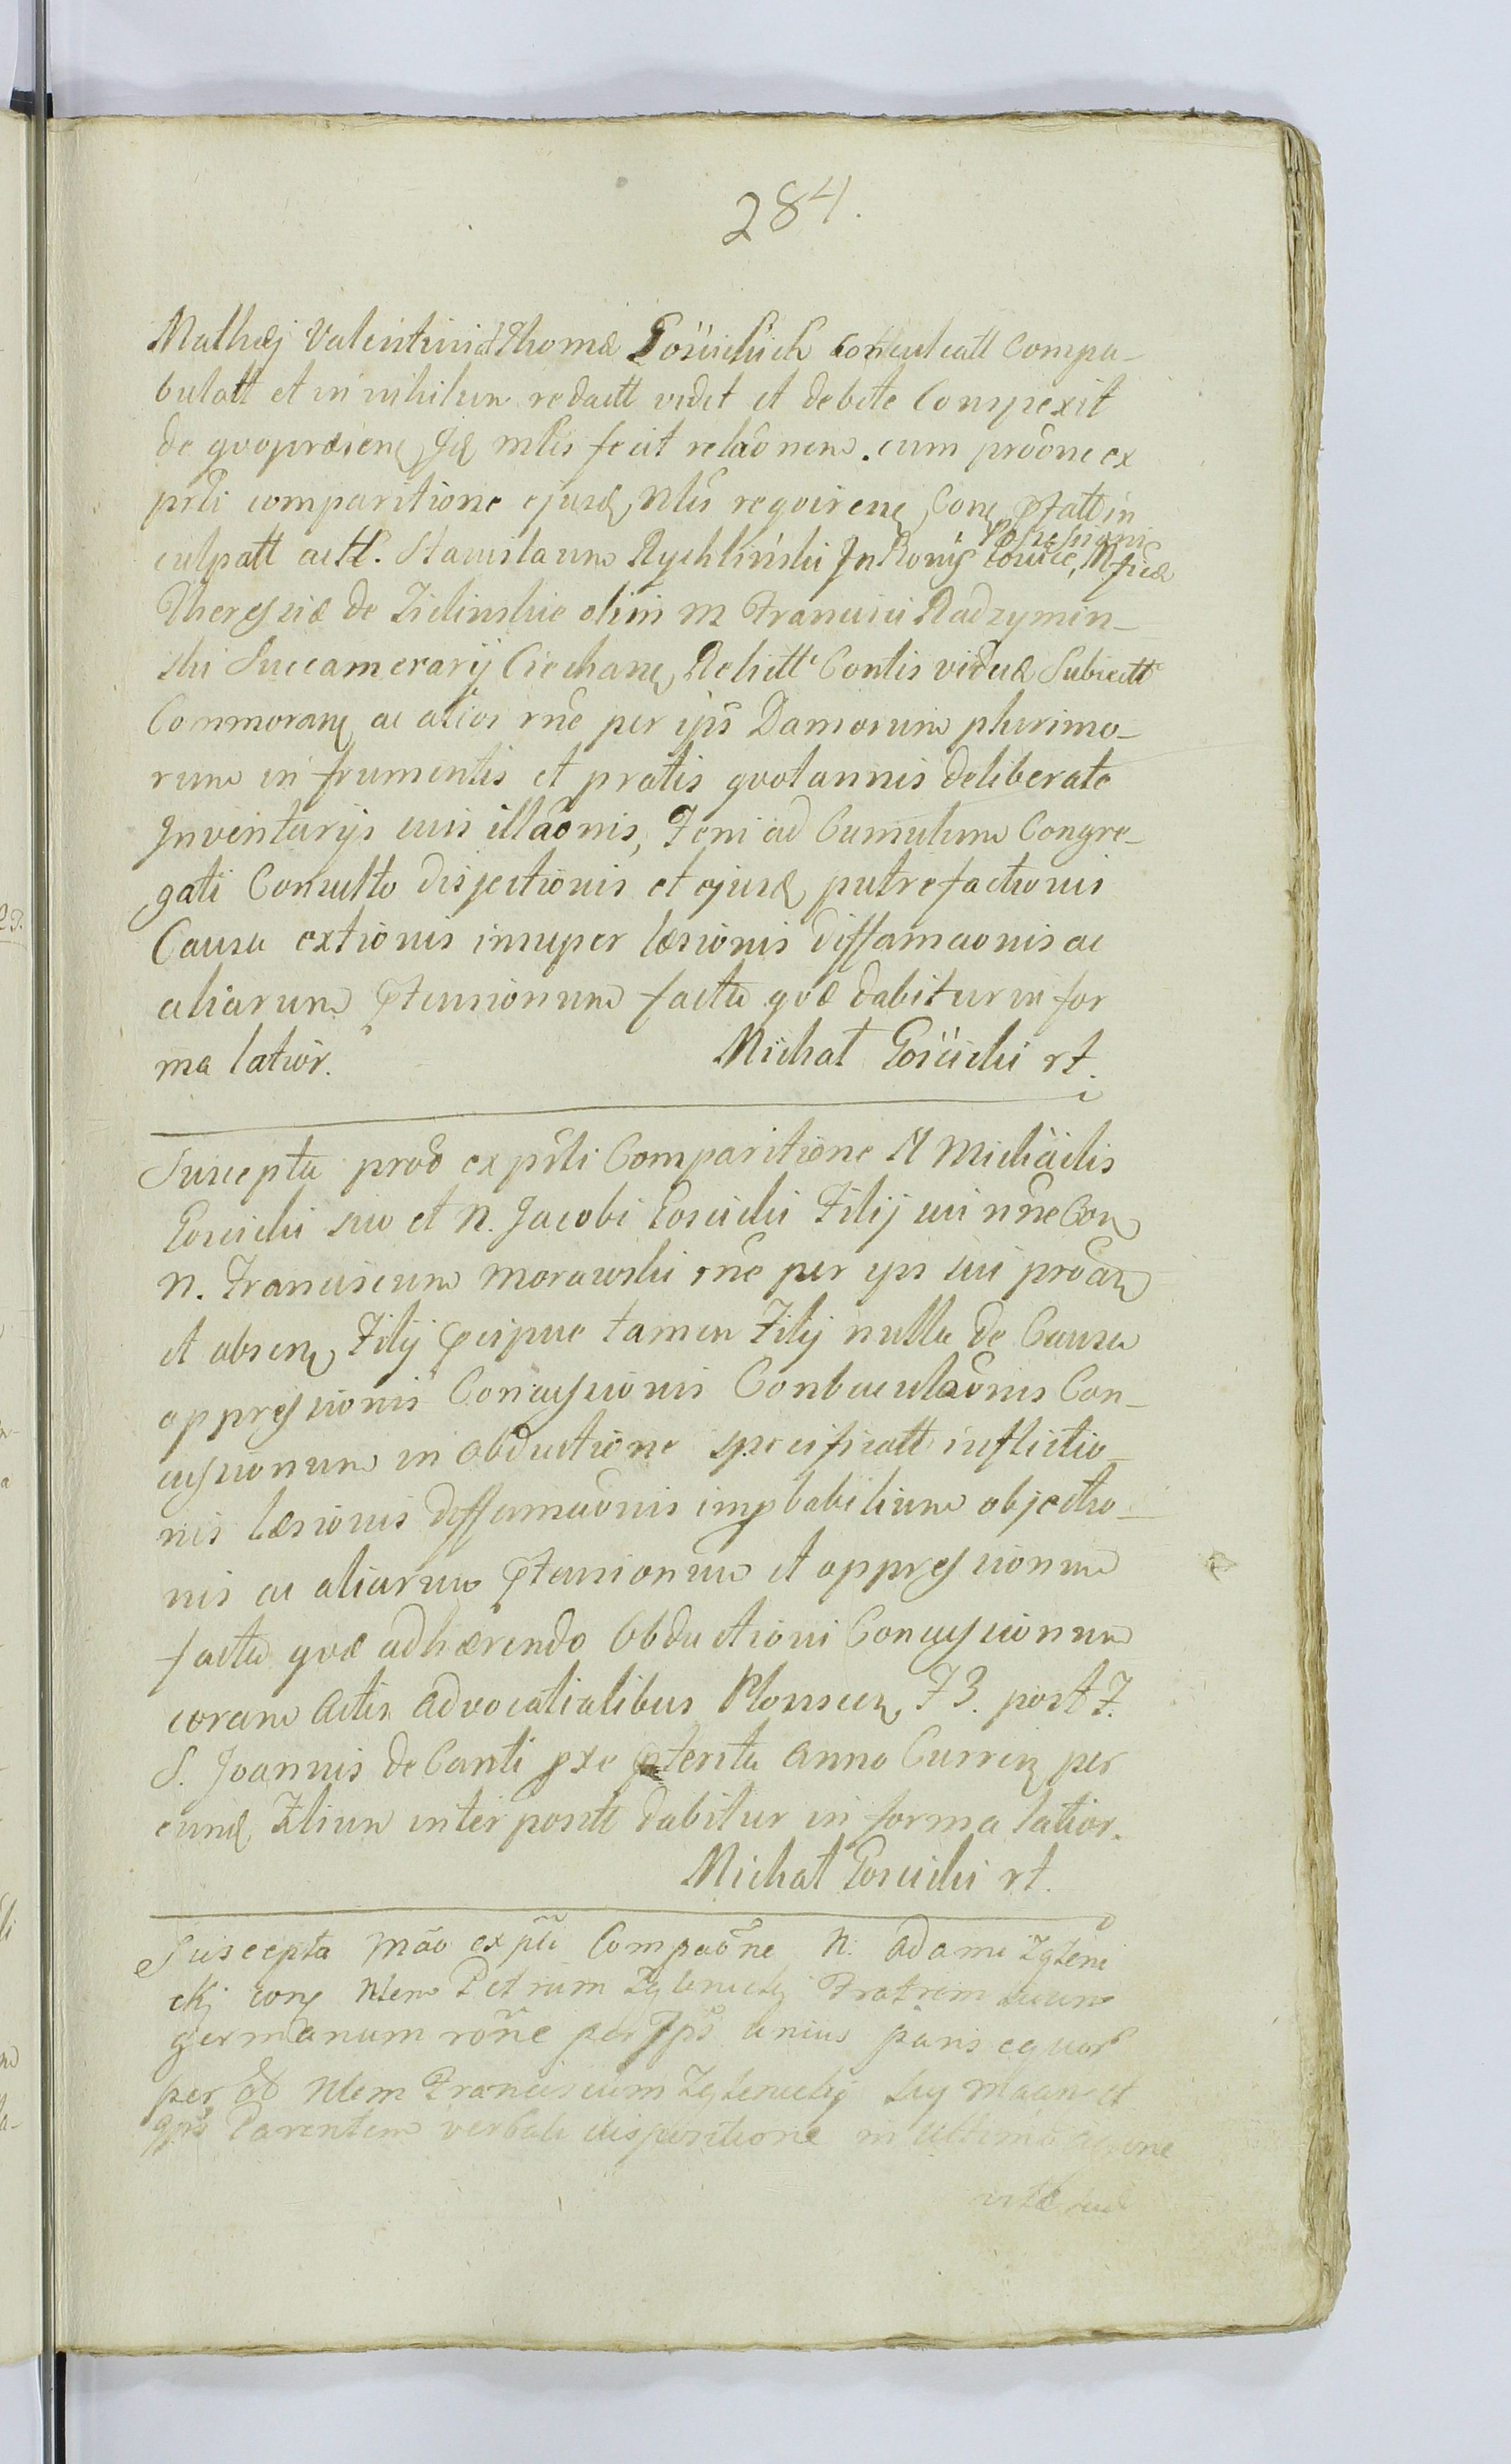 284.
Mathæj Valentini et Thomæ Gościckich conculcatt compa-
bulatt et in nihilum redactt vidit et debite Conspexit
de quo præsene Jid mlis fecit relãonem. cum prõõne ex
prti comparitione ejusd Nlis reqvirene Cone
culpatt ac H. Stanislaum Rychlinski In Bonis Possessiani Mficæ
Theressiæ de Zielinskie olim M Francisci Radzymin-
ski Succamerarij Ciechane Relictt Contis viduæ Subiectt
Commorane ac alios rne per ips Damnorum plurimo-
rum in frumentis et pratis qvotannis deliberate
Inventarijs suis illãonis, Feni ad Cumulum Congre-
gati Consulto disjectionis et ejusd putrefactionis
Causa extionis insuper læsionis diffamaonis ac
aliarum ptensionum facta qvæ dabitur in for
ma latior. Michał Gościcki rt.
Suscepta prõõ ex prti Comparitione N Michaelis
Goscicki suo et N. Jacobi Goscicki Filij sui nne Con
N. Franciscum Morawski rne per ips sui proan
et absene Filij pcipue tamen Filij nulla de Causa
oppressionis Concussionis Conbaculaõnis Con-
cussionum in obductione specificatt inflictio-
nis læsionis diffamaonis impbabilium objectio-
nis ac aliarum ptensionum et oppressionum
facta qvæ adhærendo Obductioni Concussionum
coram Actis Advocatialibus Plonscen F 3. post F.
S. Joannis de Canti pxe pterita Anno Curren per
eund Filium interpositt dabitur in forma latior.
Michał Goscicki rt.
Suscepta Mão ex pti Compaõne N. Adami Zgleni
ckj cone Nlem Petrum Zglenicky Fratrem suum
germanum rõne per Ips unius paris eqvor
per olb Nlem Franciscum Zglenicky suy Maan et
Ips Parentem verbali dispositione in ultimo agone
vitæ suæ